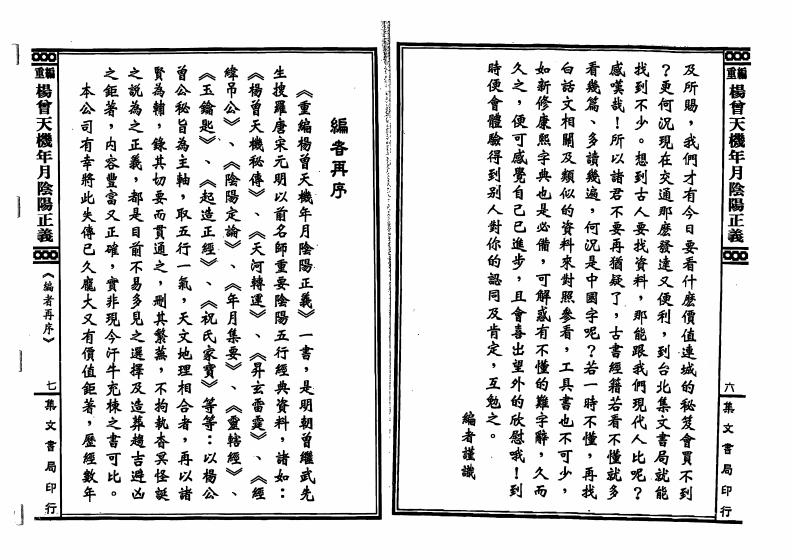 重編 楊曾天機年月陰陽正義
六
集文書局印行
及所賜，我們才有今日要看什麽價值連城的秘笈會買不到
？更何況現在交通那麽發達又便利，到台北集文書局就能
找到不少。想到古人要找資料，那能跟我們現代人比呢？
感嘆哉！所以諸君不要再猶疑了，古書經藉若看不懂就多
看幾篇、多讀幾遍，何況是中國字呢？若一時不懂，再找
白話文相關及類似的資料來對照參看，工具書也不可少，
如新修康熙字典也是必備，可解惑有不懂的難字辭，久而
久之，便可感覺自己已進步，且會喜出望外的欣慰哦！到
時便會體驗得到別人對你的認同及肯定，互勉之。
編者謹識
編者再序
《重編楊曾天機年月陰陽正義》一書，是明朝曾繼武先
生搜羅唐宋元明以前名師重要陰陽五行經典資料，諸如：
《楊曾天機秘傳》、《天河轉運》、《昇玄雷霆》、《經
緯吊公》、《陰陽定論》、《年月集要》、《靈轄經》、
《玉鑰匙》、《起造正經》、《祝氏家寶》等等：以楊公
曾公秘旨為主軸，取五行一氣，天文地理相合者，再以諸
賢為輔，錄其切要而貫通之，刪其繁蕪，不拘執杳冥怪誕
之說為之正義，都是目前不易多見之選擇及造葬趨吉避凶
之鉅著，内容豐富又正確，實非現今汗牛充棟之書可比。
本公司有幸將此失傳已久龐大又有價值鉅著，歷經數年
重編 楊曾天機年月陰陽正義
《編者再序》
七
集文書局印行